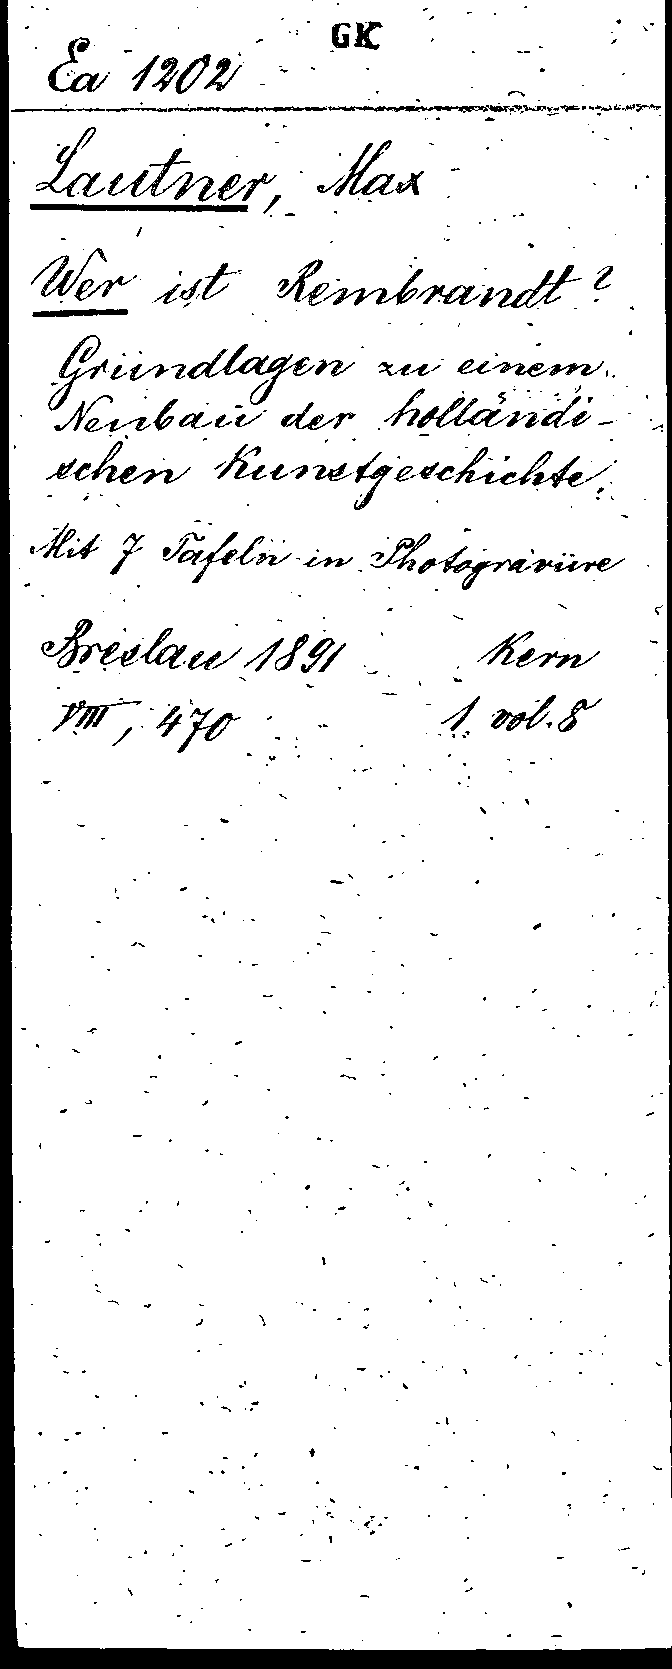 GK
Ea 1202
Lautner, Max
Wer ist Rembrandt?
Grundlagen zu einem
Neubau der holländi-
schen Kunstgeschichte.
Mit 7 Tafeln in Photogravüre
Breslau 1891 Kern
VIII, 470 1 vol. 8